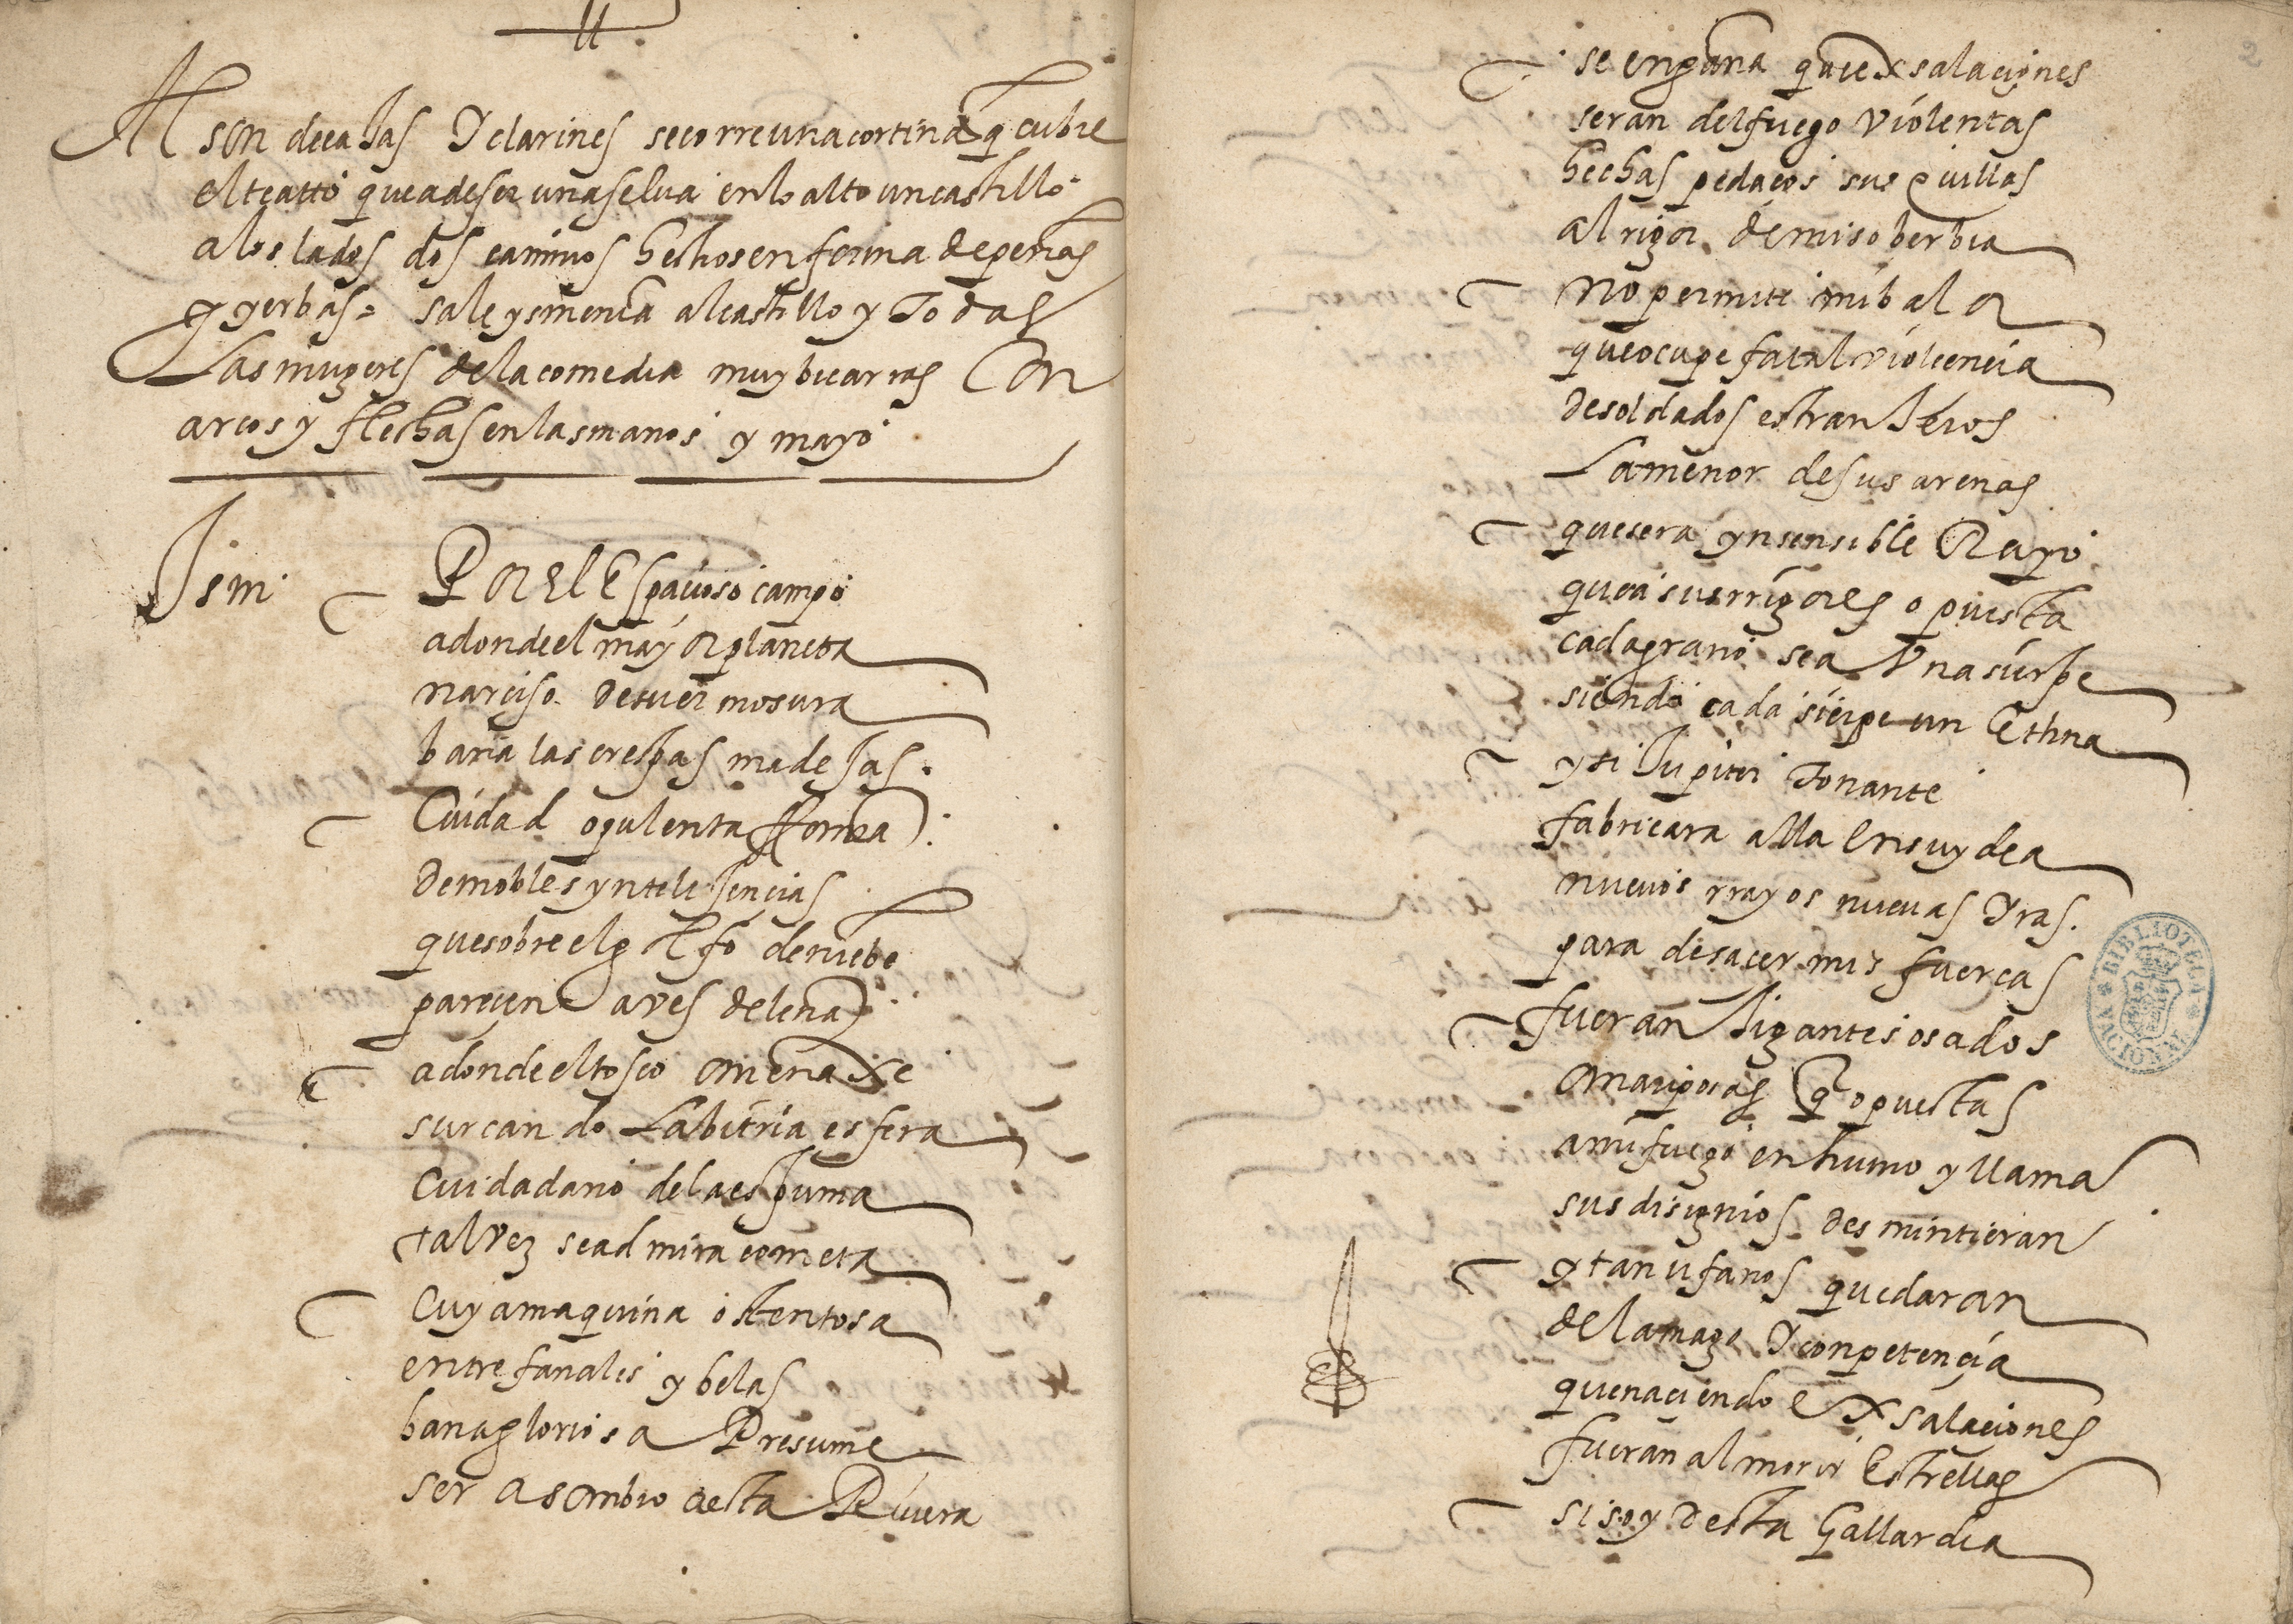 Al son de cajas Y clarines se corre una cortina q cubre
el teatro que a de ser una selva en lo alto un castillo
a los lados dos caminos hechos en forma de peñas
y yerbas = sale ysmenia al castillo y Todas
Las mugeres de la comedia muy bicarras Con
arcos y flechas en las manos y mayo
Ism.
Por el Espacioso campo
adonde el mayor planeta
narciso de su ermosura
baña las crespas madejas.
Ciudad opulenta forma
de nobles yntelijencias
que sobre el golfo de niebe
parecen aves de leña
adonde el tosco omenaxe
surcando La bitria esfera
Ciudadano de la espuma
tal vez se admira cometa
Cuya maquina ostentosa
entre fanales y belas
banagloriosa Presume
ser asombro desta Rivera
se engaña que exsalaciones
seran del fuego violentas
hechas pedaços sus quillas
al rigor de mi soberbia
no permite mi balor
que ocupe fatal violencia
de soldados estranjeros
La menor de sus arenas
que sera ynsensible Rayo
que a sus rrigores opuesta
cada grano sea Una sierpe
siendo cada sierpe un Ethna
y si Jupiter Tonante
fabricara alla En su ydea
nuevos rrayos nuevas Yras.
para desacer mis fuercas
fueran Jigantes osados
o mariposas q opuestas
a mi fuego en humo y llama
sus disignios desmintieran
y tan ufanos quedaran
de la Y conpetencia
que naciendo Exsalaciones
fueran al morir Estrellas
si soy desta Gallardia
BIBLIOTECA NACIONAL